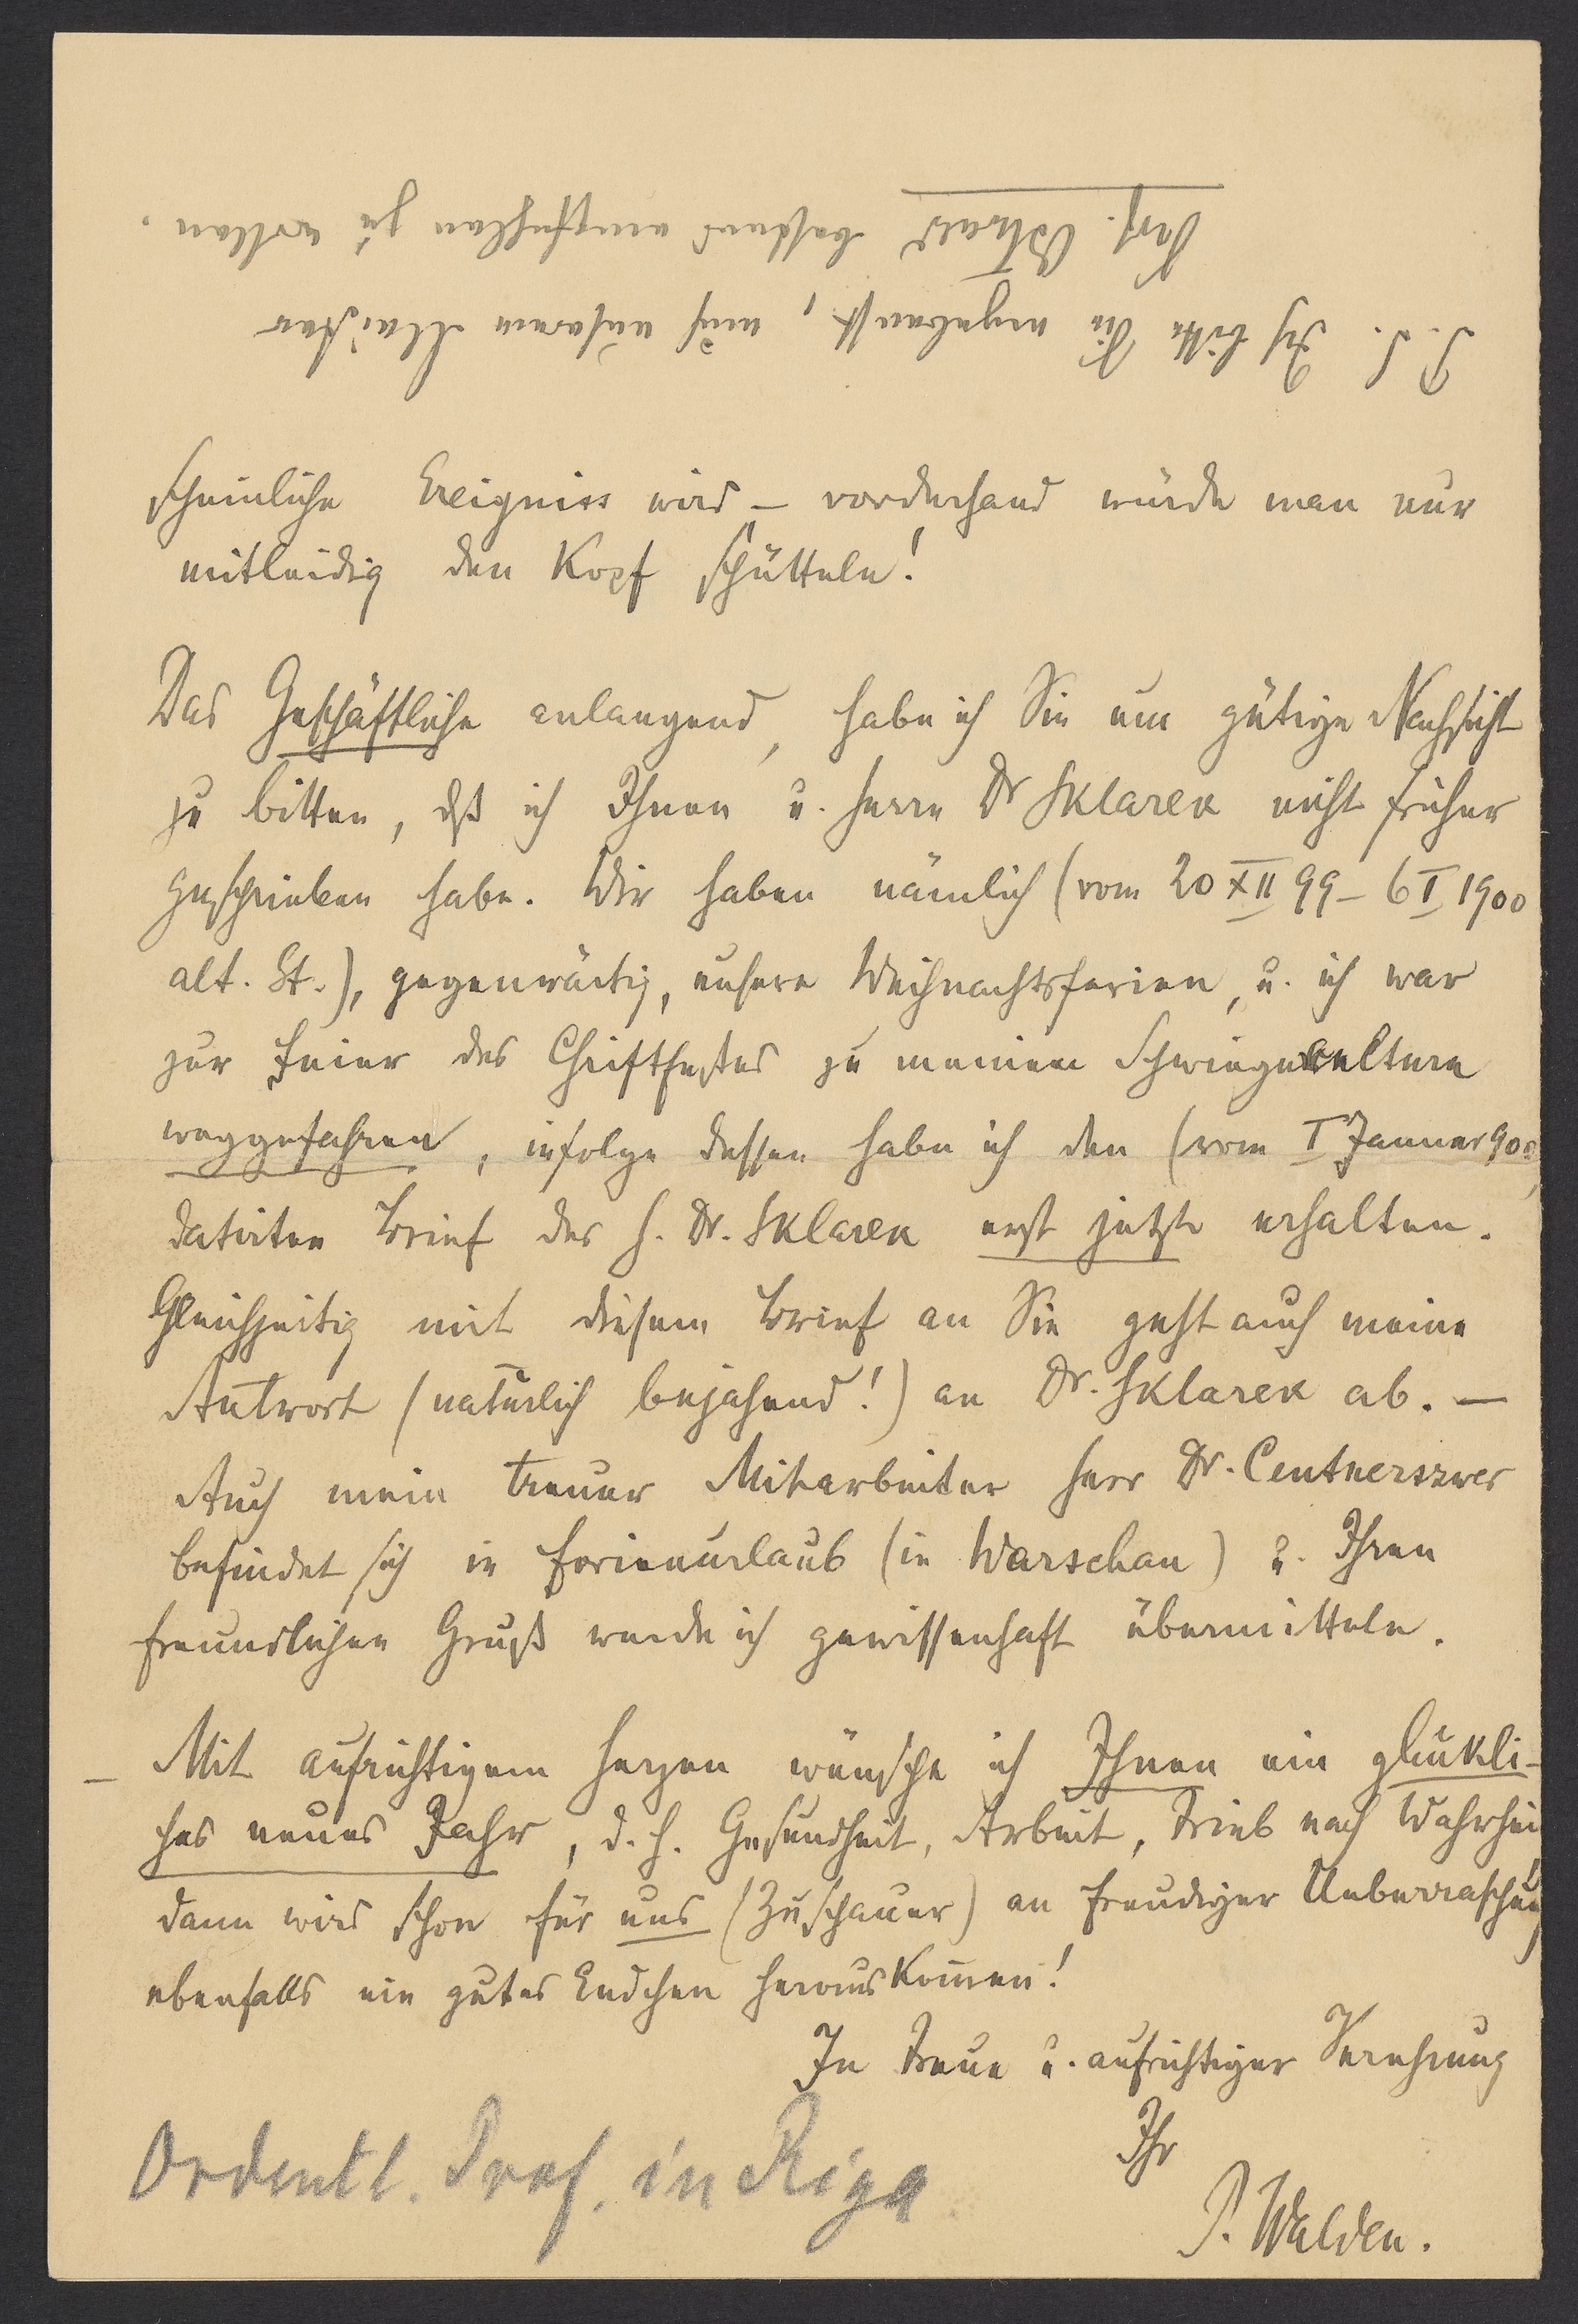 P. S. Ich bitte Sie ergebenst, mich unserem Meister
Prof. Ostwald bestens empfehlen zu wollen.
scheinliche Ereigniss wird – vorderhand würde man nur
mitleidig den Kopf schütteln!
Das Geschäftliche anlangend, habe ich Sie um gütige Nachsicht
zu bitten, dß ich Ihnen u. Herrn Dr Sklarek nicht früher
geschrieben habe. Wir haben nämlich (vom 20 XII 99 – 6 I 1900
alt. St.), gegenwärtig, unsere Weihnachtsferien, u. ich war
zur Feier des Christfestes zu meinen Schwiegereltern
weggefahren, infolge dessen habe ich den (vom I Januar 900
datirten Brief des H. Dr. Sklarek erst jetzt erhalten.
Gleichzeitig mit diesem Brief an Sie geht auch meine
Antwort (natürlich bejahend!) an Dr. Sklarek ab. —
Auch mein treuer Mitarbeiter Herr Dr. Centnerszwer
befindet sich in Ferienurlaub (in Warschau) u. Ihren
freundlichen Gruß werde ich gewissenhaft übermitteln.
– Mit aufrichtigem Herzen wünsche ich Ihnen ein glückli-
ches neues Jahr, d. h. Gesundheit, Arbeit, Trieb nach Wahrhei
dann wird schon für uns (Zuschauer) an freudiger Ueberraschung
ebenfalls ein gutes Endchen herauskommen!
In Treue u. aufrichtiger Verehrung
Ihr
P. Walden.
Ordentl. Prof. in Riga